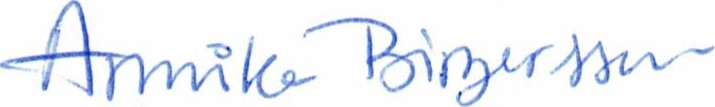 Annika Birgersson